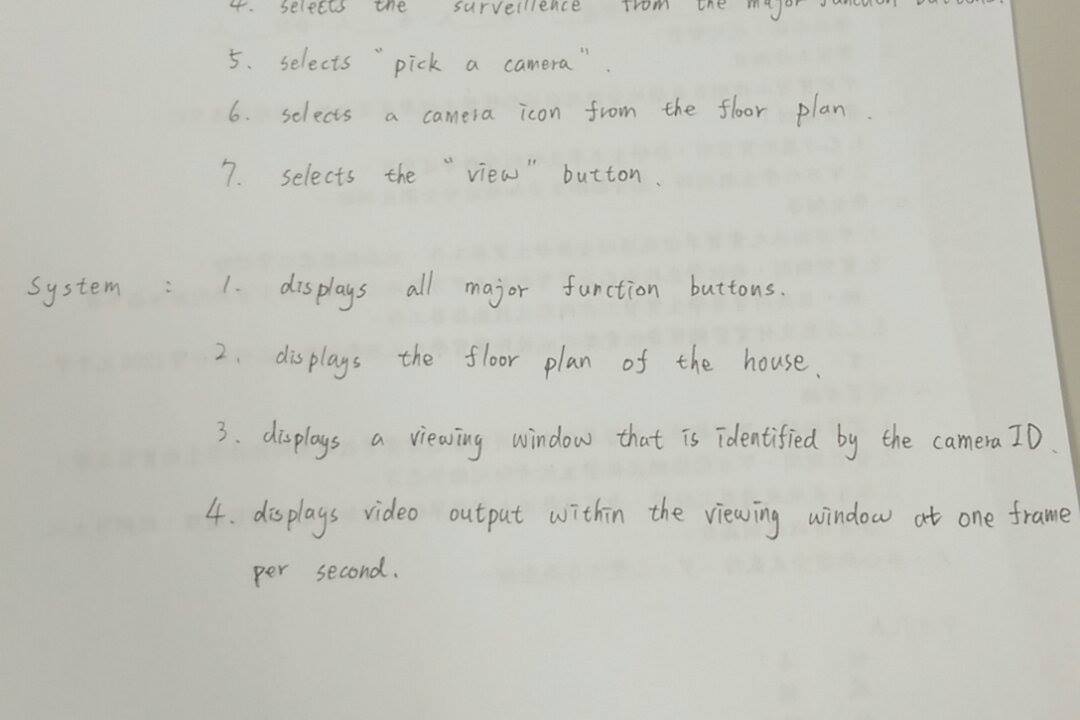 4. selects the surveillence from the major function buttons.
5. selects "pick a camera".
6. selects a camera icon from the floor plan.
7. selects the "view" button.
System : 1. displays all major function buttons.
2. displays the floor plan of the house.
3. displays a viewing window that is identified by the camera ID.
4. displays video output within the viewing window at one frame
per second.